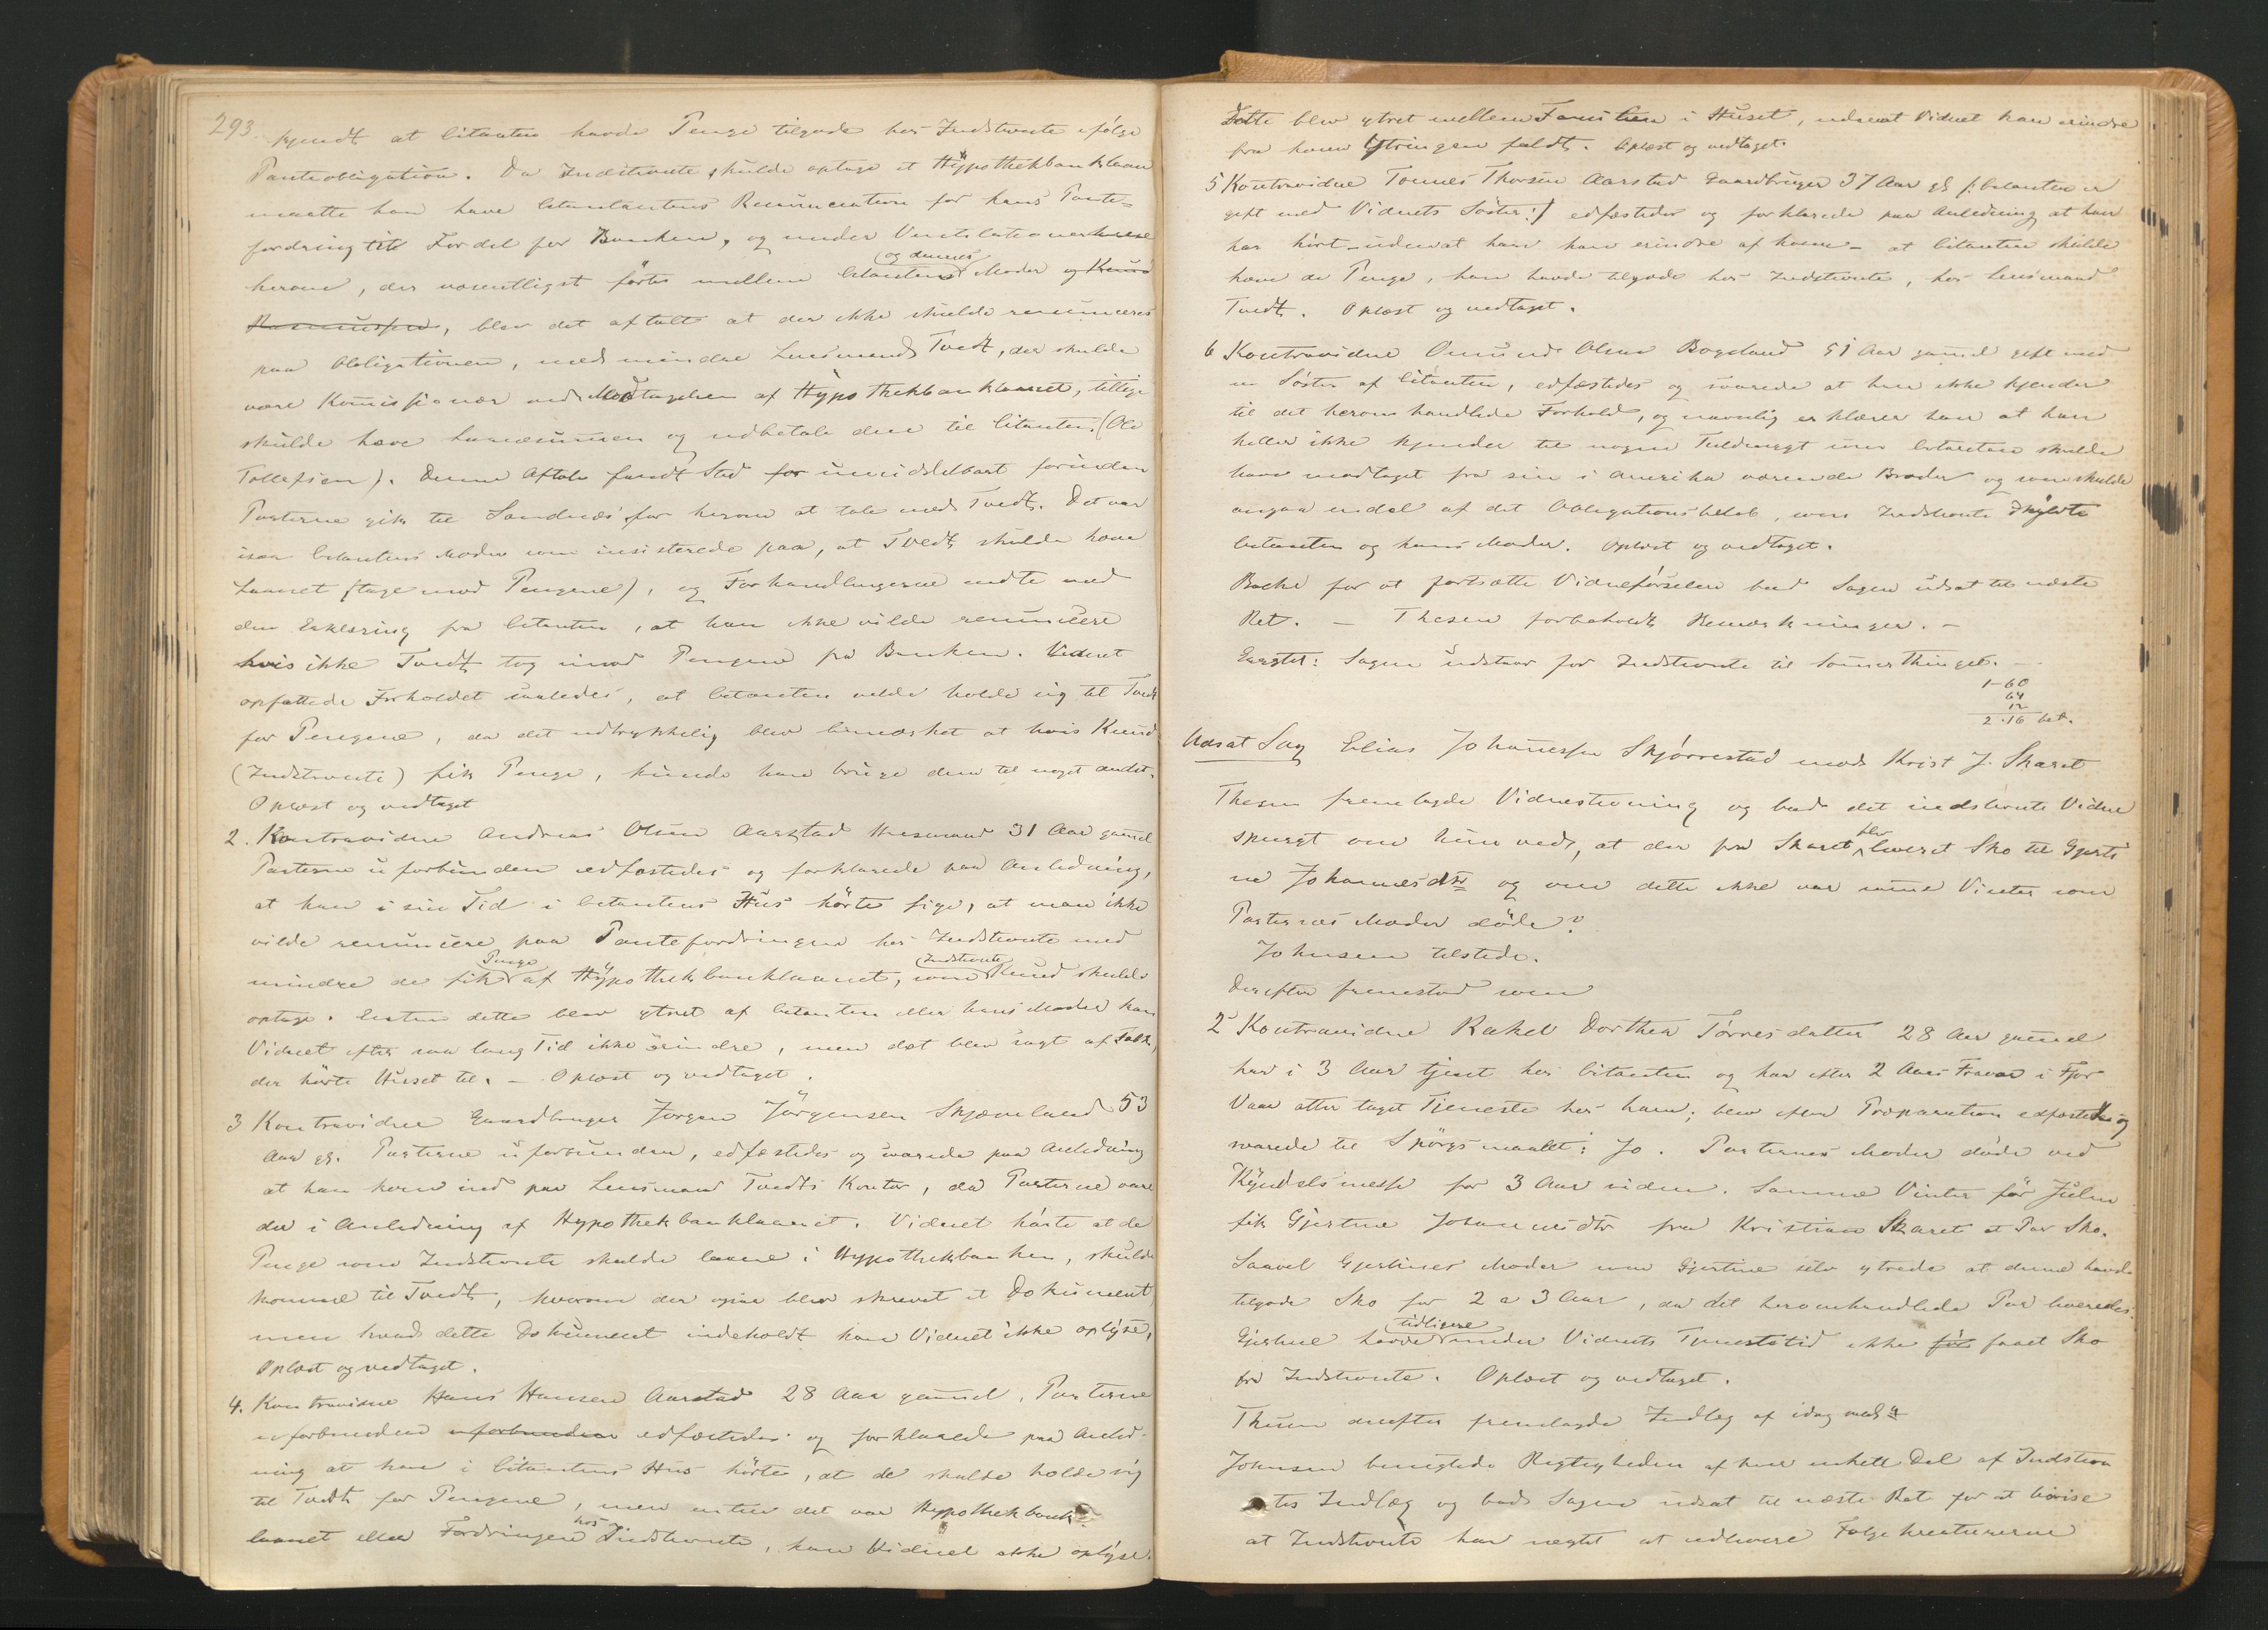 293.
kjendt at Citanten havde Penge tilgode hos Indstevnte ifølge
Panteobligation. Da Indstevnte skulde optage et Hypothekbanklaan
maatte han have Citantens Renunciation for hans Pante-
fordring til Fordel for Banken, og under Ventilationerne
herom, der væsentligst førtes mellem Citanten (og dennes) Moder og Knud
Rasmussen, blev det aftalt at der ikke skulde renunceres
paa Obligationen, med mindre Lensmand Tvedt, der skulde
være Kommissionær ved Modtagelsen af Hypothekbanklaanet, tillige
skulde hæve Laanesummen og udbetale den til Citanten. (Ole
Tollefsen). Denne Aftale fandt Sted for umiddelbart forinden
Parterne gik til Sandnes for herom at tale med Tvedt. Det var
især Citantens Moder som insisterede paa, at Tvedt skulde hæve
Laanet (tage mod Pengene), og Forhandlingerne endte med
den Erklæring fra Citanten, at han ikke vilde renuncere
hvis ikke Tvedt tog imod Pengene fra Banken. Vidnet
opfattede Forholdet saaledes, at Citanten vilde holde sig til Tvedt
for Pengene, da det udtrykkelig blev bemærket at hvis Knud
(Indstevnte) fik Penge, kunde han bruge dem til noget andet.
Oplæst og vedtaget
2. Kontravidne Andreas Olsen Aarstad Husmand 31 Aar gammel
Parterne uforbunden edfæstedes og forklarede paa Anledning,
at han i sin Tid i Citantens Hus hørte sige, at man ikke
vilde renuncere paa Pantefordringen hos Indstevnte med
mindre de fik (Penge) af Hypothekbanklaanet, som (Indstevnte) Knud skulde
optage. Enten dette blev ytret af Citanten eller hans Moder kan
Vidnet efter saa lang Tid ikke erindre, men det blev sagt af Folk,
der hørte Huset til. – Oplæst og vedtaget.
3 Kontravidne Gaardbruger Jørgen Jörgensen Skjæveland 53
Aar gl. Parterne uforbunden, edfæstedes og svarede paa Anledning
at han kom ind paa Lensmand Tvedts Kontor, da Parterne vare
der i Anledning af Hypothekbanklaanet. Vidnet hørte at de
Penge som Indstevnte skulde laane i Hypothekbanken, skulde
komme til Tvedt, hvorom der ogsaa blev skrevet et Dokument,
men hvad dette Dokument indeholdt kan Vidnet ikke oplyse.
Oplæst og vedtaget.
4. Kontravidne Hans Hansen Aarstad 28 Aar gammel, Parterne
uforbunden uforbunden edfæstedes og forklarede paa Anled-
ning at han i Citantens Hus hørte, at de skulde holde sig
til Tvedt for Pengene, men enten det var Hypothekbank-
laanet eller Fordringen hos Indstevnte, kan Vidnet ikke oplyse.
Dette blev ytret mellem Familien i Huset, udenat Vidnet kan erindre
fra hvem Ytringen faldt. Oplæst og vedtaget.
5 Kontravidne Tønnes Thorsen Aarstad Gaardbruger 37 Aar gl /: Citanten er
gift med Vidnets Søster :/ edfæstedes og forklarede paa Anledning at han
har hørt – udenat han kan erindre af hvem – at Citanten skulde
hæve de Penge, han havde tilgode hos Indstevnte, hos Lensmand
Tvedt. Oplæst og vedtaget.
6 Kontravidne Omund Olsen Bogeland 51 Aar gammel gift med
en Søster af Citanten, edfæstedes og svarede at han ikke kjender
til det heromhandlede Forhold, og navnlig erklærer han at han
heller ikke kjender til nogen Fuldmagt som Citanten skulde
have modtaget fra sin i Amerika værende Broder og som skulde
angaa en del af det Obligationsbeløb, som Indstevnte skyldte
Citanten og hans Moder. Oplæst og vedtaget.
Backe for at fortsætte Vidneførselen bad Sagen udsat til næste
Ret. – Thesen forbeholdt Bemærkninger. –
Eragtet: Sagen udstaar for Indstevnte til Sommerthinget. –
1-60
64
12
2.16 bet.
Udsat Sag Elias Johannessen Skjørrestad mod Krist J. Skaret
Thesen fremlagde Vidnestevning og bad det indstevnte Vidne
spurgt om hun ved, at der fra Skaret blev leveret Sko til Gjerti
ne Johannesdtr og om dette ikke var samme Vinter som
Parternes Moder døde?
Johnsen tilstede.
Derefter fremstod som
2 Kontravidne Rakel Dorthea Tørresdatter 28 Aar gammel
har i 3 Aar tjent hos Citanten og har efter 2 Aars Fravær i Fjor
Vaar atter taget Tjeneste hos ham; blev efter Præparation edfæstet og
svarede til Spørgsmaalet: Jo. Parternes Moder døde ved
Kyndelsmesse for 3 Aar siden. Samme Vinter før Julen
fik Gjertine Johannesdtr fra Kristian Skaret et Par Sko.
Saavel Gjertines Moder som Gjertine selv ytrede at denne havde
tilgode Sko for 2 a 3 Aar, da det heromhandlede Par leveredes.
Gjertine havde (tidligere) under Vidnets Tjenestetid ikke før faaet Sko
fra Indstevnte. Oplæst og vedtaget.
Thesen derefter fremlagde Indlæg af idag med 4
Johnsen benegtede Rigtigheden af hver enkelt Del af Indstevn
tes Indlæg og bad Sagen udsat til næste Ret for at bevise
at Indstevnte har nægtet at udlevere Følgekreaturerne